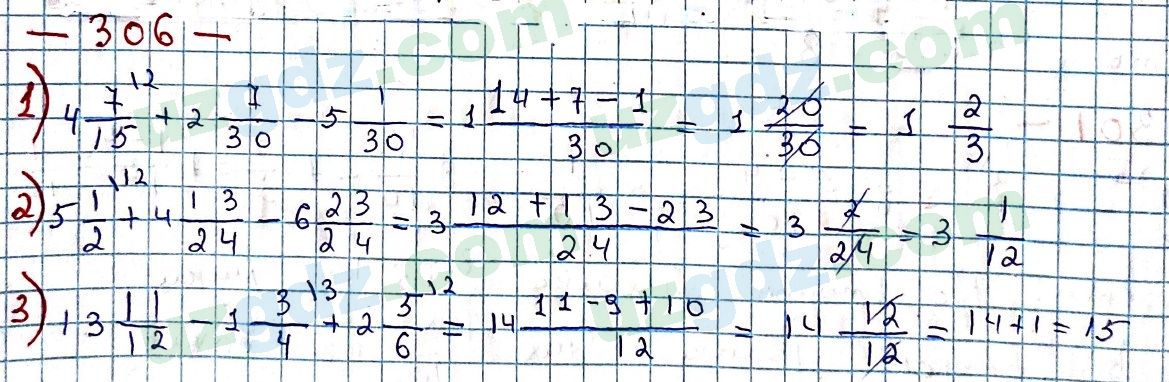 — 306 —
1) 4 7/15 \2 + 2 7/30 − 5 1/30 = 1 (14 + 7 − 1)/30 = 1 20/30 = 1 2/3
2) 5 1/2 \12 + 4 13/24 − 6 23/24 = 3 (12 + 13 − 23)/24 = 3 2/24 = 3 1/12
3) 13 11/12 − 1 3/4 \3 + 2 5/6 \2 = 14 (11 − 9 + 10)/12 = 14 12/12 = 14 + 1 = 15
uzgdz.com
uzgdz.com
uzgdz.com
uzgdz.com
uzgdz.com